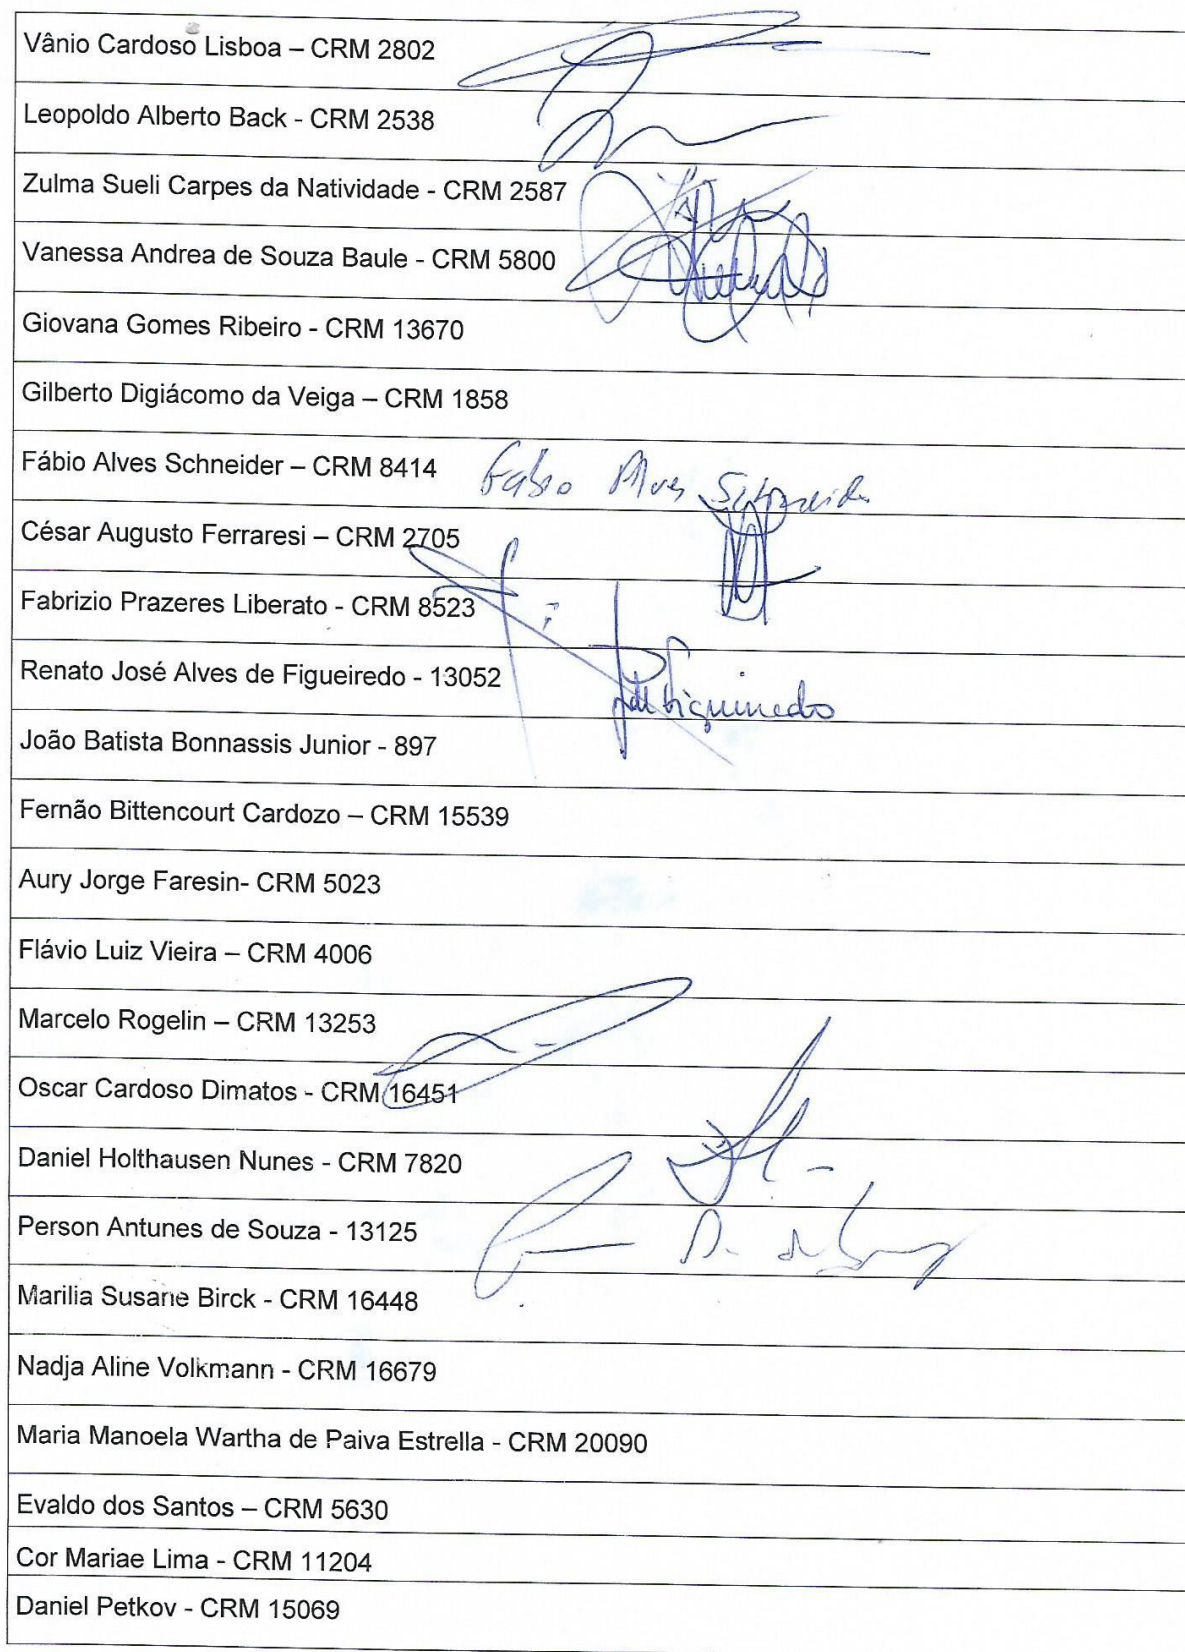 Vânio Cardoso Lisboa – CRM 2802
Leopoldo Alberto Back - CRM 2538
Zulma Sueli Carpes da Natividade - CRM 2587
Vanessa Andrea de Souza Baule - CRM 5800
Giovana Gomes Ribeiro - CRM 13670
Gilberto Digiácomo da Veiga – CRM 1858
Fábio Alves Schneider – CRM 8414 Fabio Alves Schneider
César Augusto Ferraresi – CRM 2705
Fabrizio Prazeres Liberato - CRM 8523
Renato José Alves de Figueiredo - 13052
João Batista Bonnassis Junior - 897
Fernão Bittencourt Cardozo – CRM 15539
Aury Jorge Faresin- CRM 5023
Flávio Luiz Vieira – CRM 4006
Marcelo Rogelin – CRM 13253
Oscar Cardoso Dimatos - CRM 16451
Daniel Holthausen Nunes - CRM 7820
Person Antunes de Souza - 13125
Marilia Susane Birck - CRM 16448
Nadja Aline Volkmann - CRM 16679
Maria Manoela Wartha de Paiva Estrella - CRM 20090
Evaldo dos Santos – CRM 5630
Cor Mariae Lima - CRM 11204
Daniel Petkov - CRM 15069